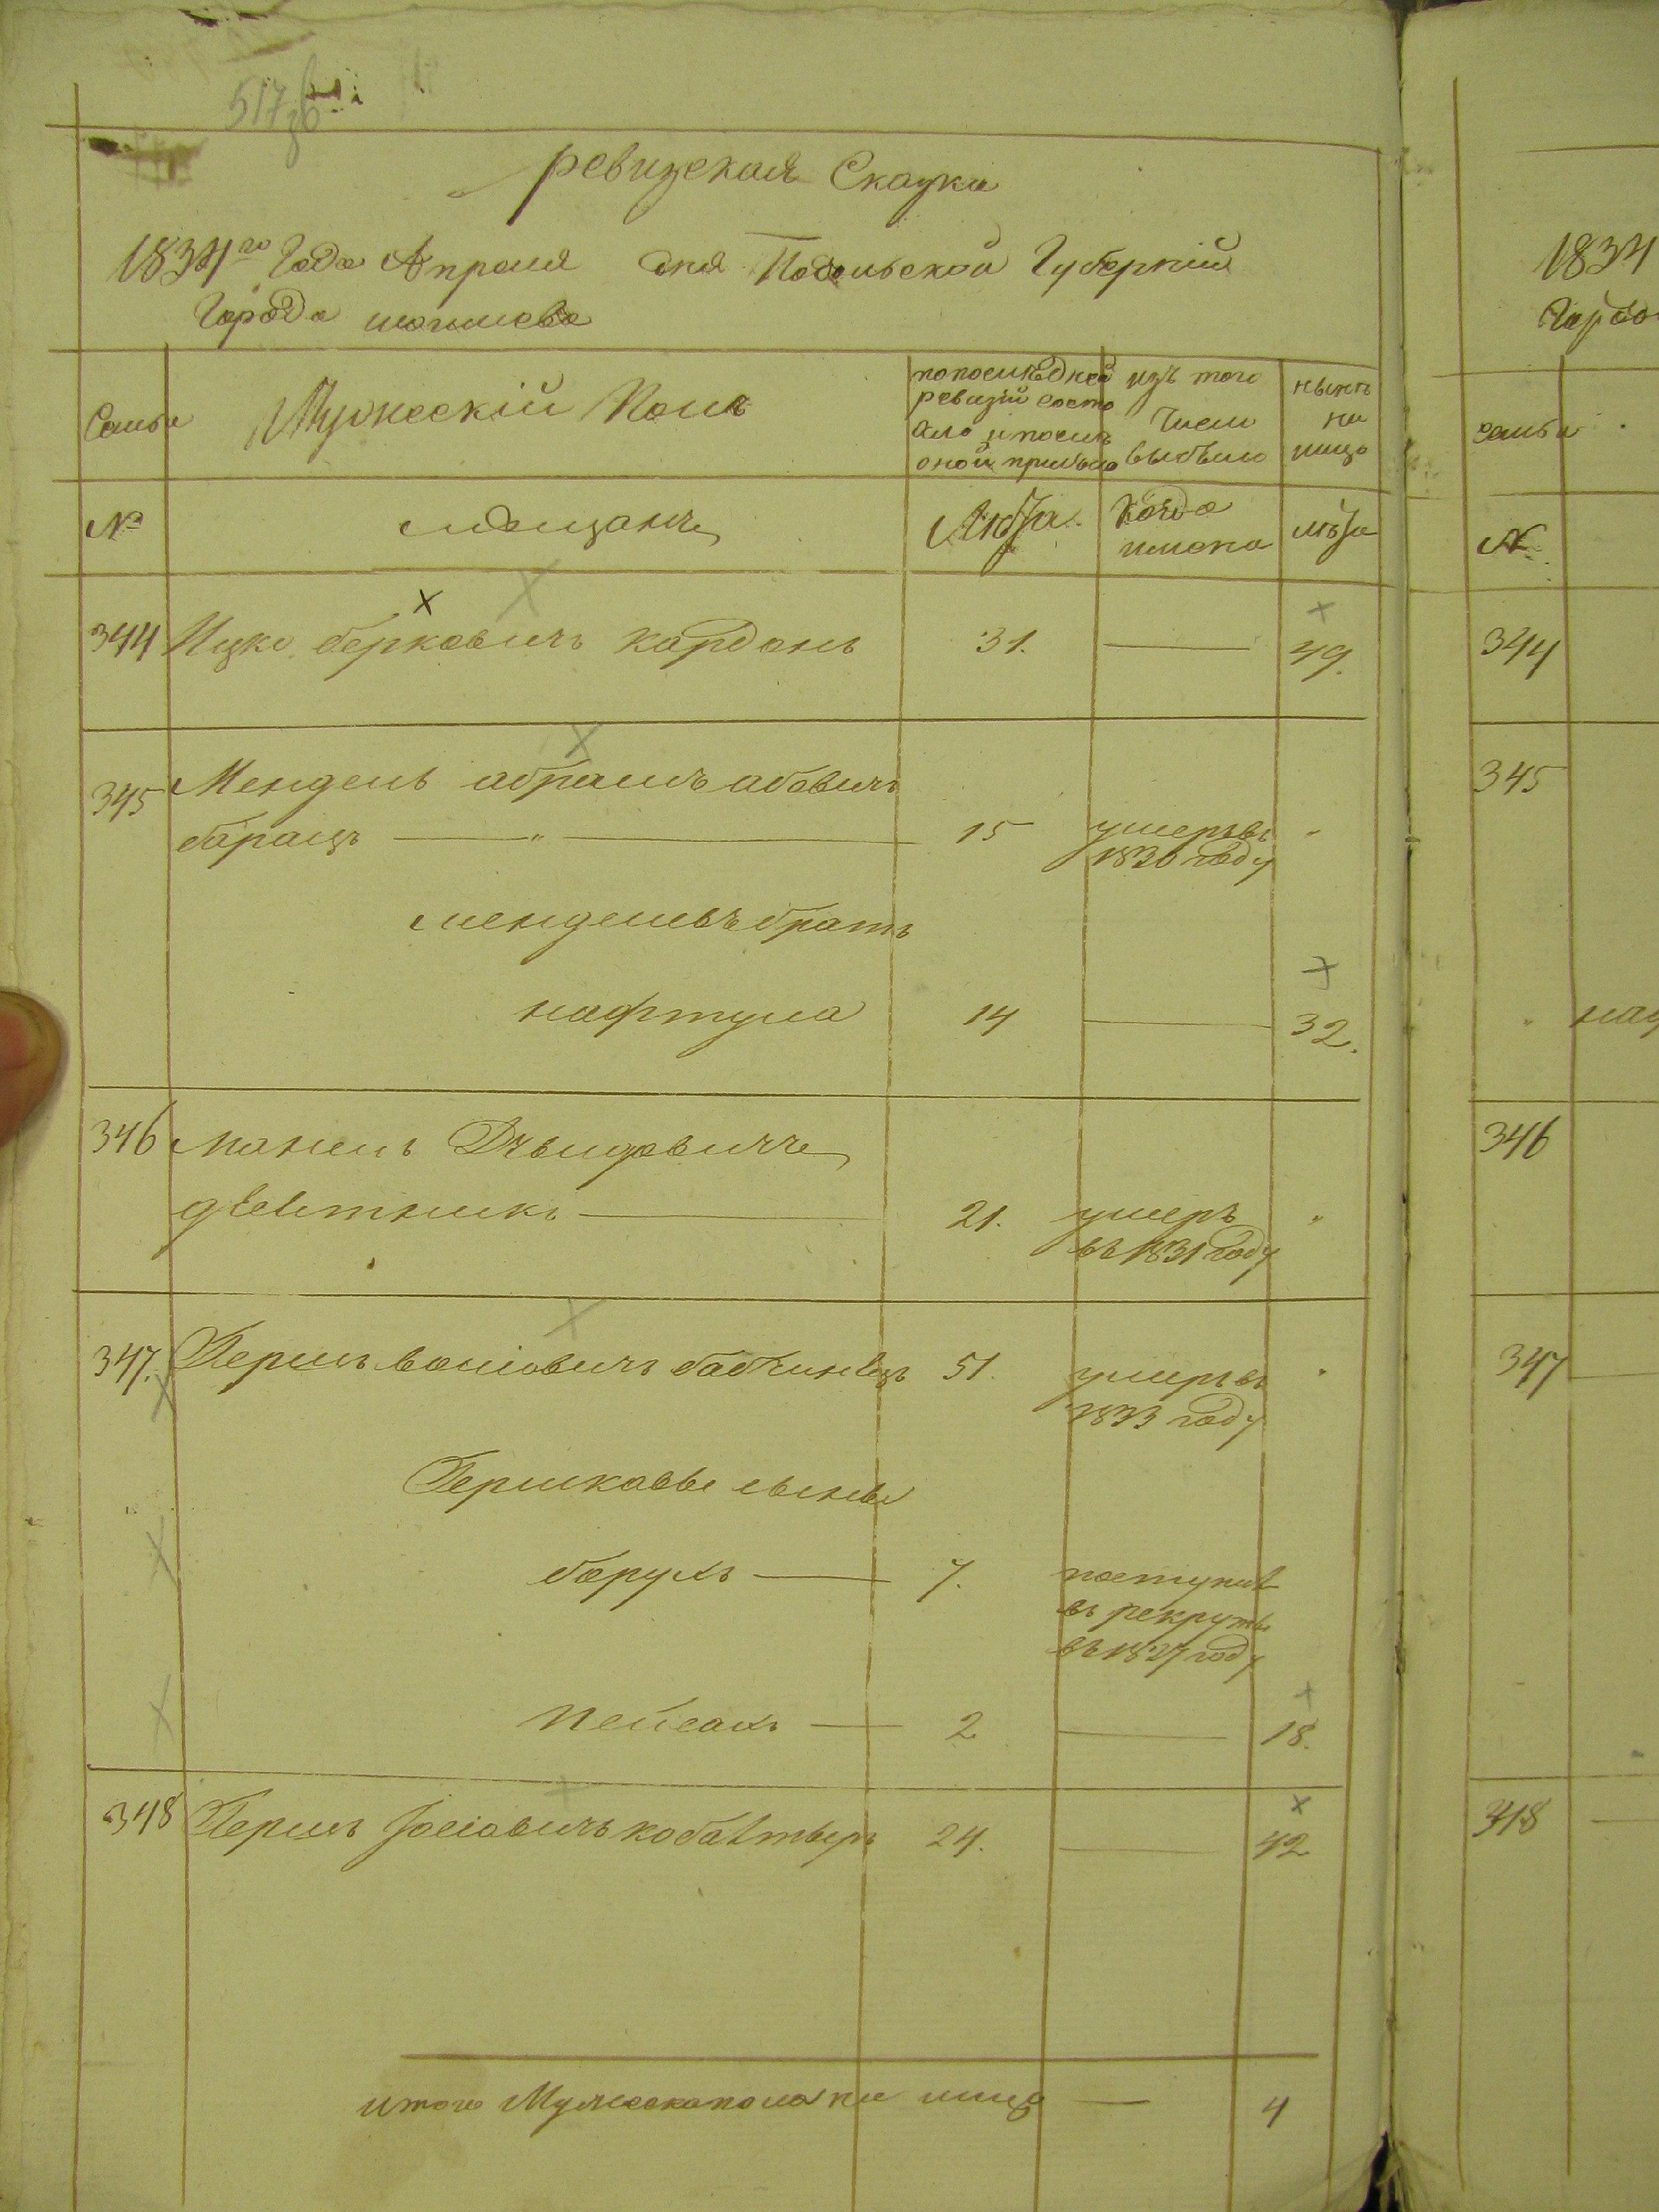 517
ревизская Сказка
1834го Года Апреля дня Подольской Губерніи
Города могилева
Семьи
Мужескій Полъ
по последней
ревизіи состо
яло и после
оной прибыло
изъ того
Числа
выбыло
ныне
на
лицо
№
мещане
Лѣта
Когда
имено
лѣта
344 Ицко берковичъ кардонъ 31. 49.
345 Мендель абрамъ абовичъ
барацъ — " — 15 умеръ въ
1830 году "
менделевъ братъ
нафтула 14 32.
346 манель
21. умеръ
въ 1831 году "
347. Герш бабчинецъ 51. умеръ въ
1833 году "
Гершковы сыны
барухъ — 7. поступил
въ рекруты
въ 1827 году
Пейсахъ — 2 18.
348 Герш Іосіовичъ 24. 42
итого Мужеска пола на лицо — 4
1834
Город
семьи
№
344
345
наф
346
347
348